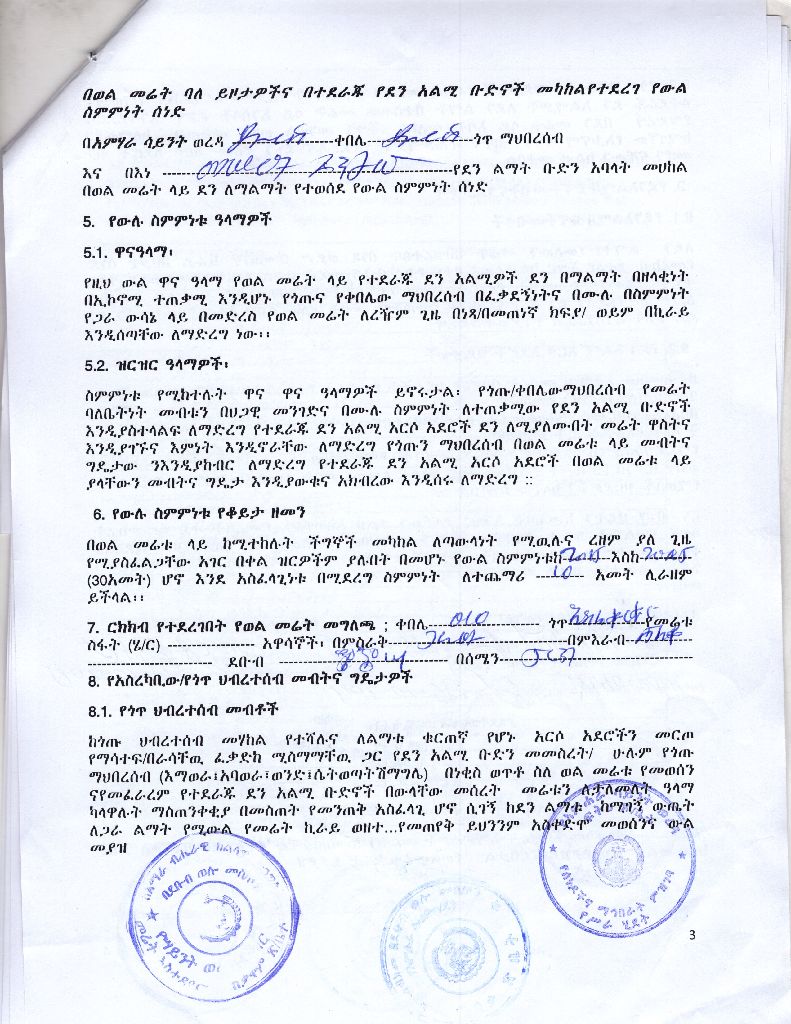 በወል መሬት ባለ ይዞታዎችና በተደራጁ የደን አልሚ ቡድኖች መካከልየተደረገ የውል
ስምምነት ሰነድ
በአምሃራ ሳይንት ወረዳ -------------------ቀበሌ----------------ጎጥ ማህበረሰብ
እና በእነ ---------------------------------------የደን ልማት ቡድን አባላት መሀከል
በወል መሬት ላይ ደን ለማልማት የተወሰደ የውል ስምምነት ሰነድ
5. የውሉ ስምምነቱ ዓላማዎች
5.1. ዋናዓላማ፡
የዚህ ውል ዋና ዓላማ የወል መሬት ላይ የተደራጁ ደን አልሚዎች ደን በማልማት በዘላቂነት
በኢኮኖሚ ተጠቃሚ እንዲሆኑ የጎጡና የቀበሌው ማህበረሰብ በፈቃደኝነትና በሙሉ በስምምነት
የጋራ ውሳኔ ላይ በመድረስ የወል መሬት ለረዥም ጊዜ በነጻ/በመጠነኛ ክፍያ/ ወይም በኪራይ
እንዲሰጣቸው ለማድረግ ነው፡፡
5.2. ዝርዝር ዓላማዎች፡
ስምምነቱ የሚከተሉት ዋና ዋና ዓላማዎች ይኖሩታል፡ የጎጡ/ቀበሌውማህበረሰብ የመሬት
ባለቤትነት መብቱን በህጋዊ መንገድና በሙሉ ስምምነት ለተጠቃሚው የደን አልሚ ቡድኖች
እንዲያስተላልፍ ለማድረግ የተደራጁ ደን አልሚ አርሶ አደሮች ደን ለሚያለሙበት መሬት ዋስትና
እንዲያገኙና እምነት እንዲኖራቸው ለማድረግ የጎጡን ማህበረሰብ በወል መሬቱ ላይ መብትና
ግዴታው ንእንዲያከብር ለማድረግ የተደራጁ ደን አልሚ አርሶ አደሮች በወል መሬቱ ላይ
ያላቸውን መብትና ግዴታ እንዲያውቁና አክብረው እንዲሰሩ ለማድረግ ::
6. የውሉ ስምምነቱ የቆይታ ዘመን
በወል መሬቱ ላይ ከሚተከሉት ችግኞች መካከል ለጣውላነት የሚዉሉና ረዘም ያለ ጊዜ
የሚያስፈልጋቸው አገር በቀል ዝርዎችም ያሉበት በመሆኑ የውል ስምምነቱከ-2015-እስከ-2045-
(30አመት) ሆኖ እንደ አስፈላጊነቱ በሚደረግ ስምምነት ለተጨማሪ ---10--- አመት ሊራዘም
ይችላል፡፡
7. ርክክብ የተደረገበት የወል መሬት መግለጫ ; ቀበሌ-----010---------- ጎጥ----------የመሬቱ
ስፋት (ሄ/ር) ----------------- አዋሳኞች፡ በምስራቅ-----------------------በምእራብ----------
------------------------ ደቡብ -------------------------------- በሰሜን--------------------------------
8. የአስረካቢው/የጎጥ ህብረተሰብ መብትና ግዴታዎች
8.1. የጎጥ ህብረተሰብ መብቶች
ከጎጡ ህብረተሰብ መሃከል የተሻሉና ለልማቱ ቁርጠኛ የሆኑ አርሶ አደሮችን መርጦ
የማሳተፍ/በራሳቸዉ ፈቃድከ ሚስማማቸዉ ጋር የደን አልሚ ቡድን መመስረት/ ሁሉም የጎጡ
ማህበረሰብ (እማወራ፡አባወራ፡ወንድ፡ሴትወጣትሽማግሌ) በነቂስ ወጥቶ ስለ ወል መሬቱ የመወሰን
ናየመፈራረም የተደራጁ ደን አልሚ ቡድኖች በውላቸው መሰረት መሬቱን ለታለመለት ዓላማ
ካላዋሉት ማስጠንቀቂያ በመስጠት የመንጠቅ አስፈላጊ ሆኖ ሲገኝ ከደን ልማቱ ከሚገኝ ውጤት
ለጋራ ልማት የሚውል የመሬት ኪራይ ወዘተ...የመጠየቅ ይህንንም አስቀድሞ መወሰንና ውል
መያዝ
3